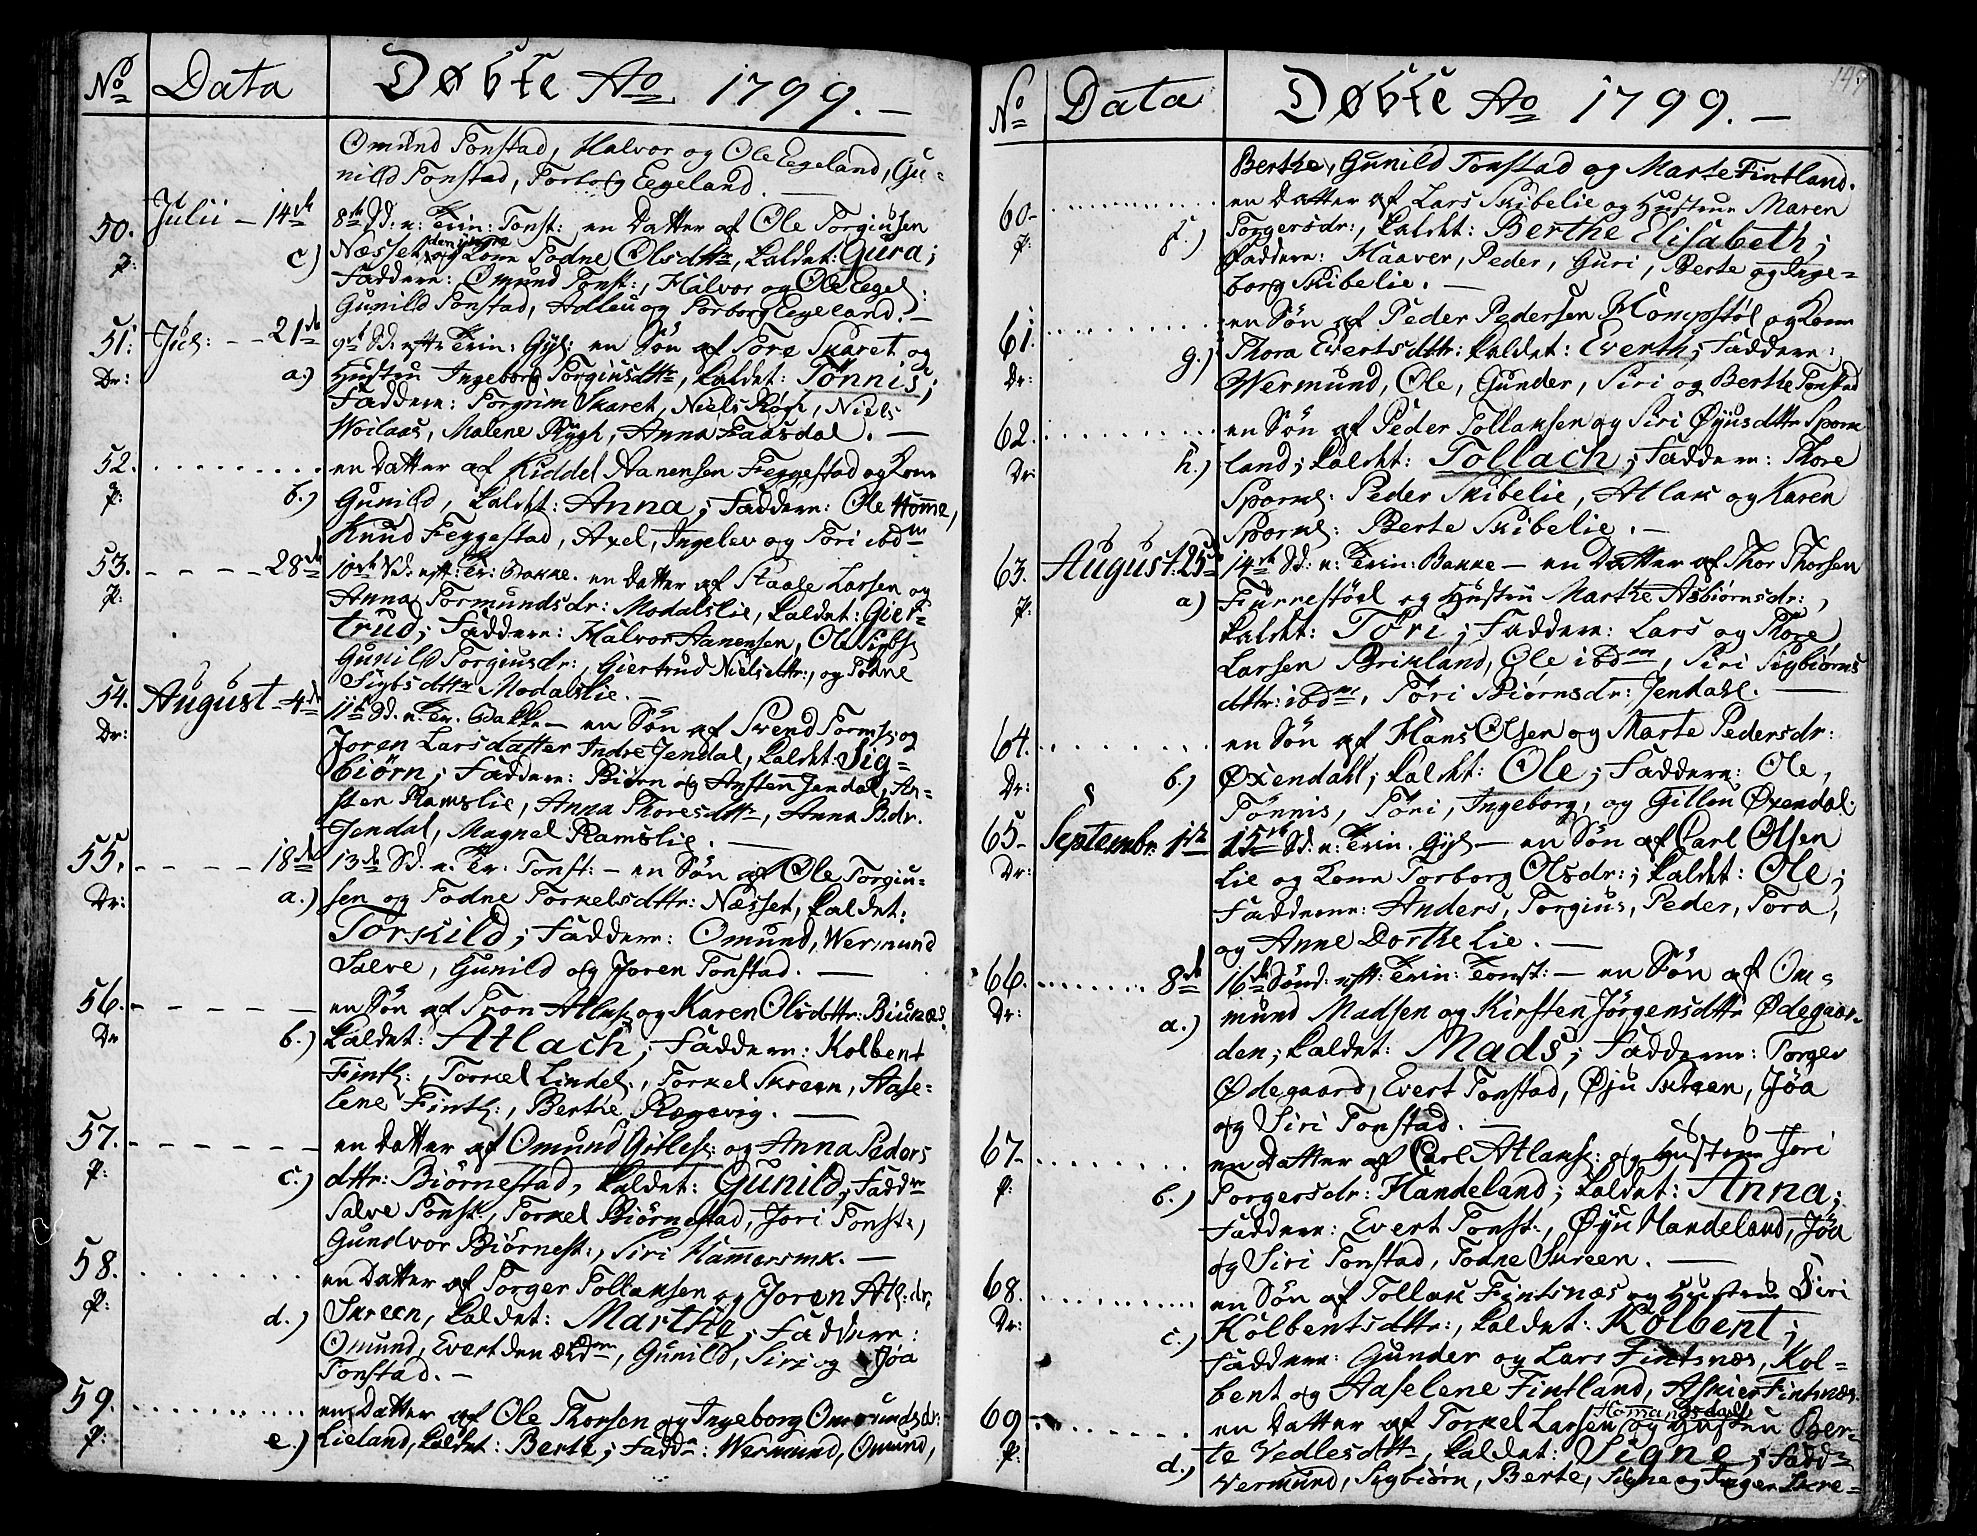 No Data Døbte Ao 1799. –
Omund Tonstad, Halvor og Ole Eegeland, Gu-
nild Tonstad, Torborg Eegeland. —
50. Julii – 14de 8de Sd: n: Trin: Tonst: en Datter af Ole Torgiusen
p: c) Næsset den yngre og Kone Todne Olsdttr, kaldet: Gura;
Faddere: Omund Tonst:, Halvor og Ole Eegel:
Gunild Tonstad, Atlau og Torborg Eegeland. –
51. Jul: - - 21de 9de Sd: eftr Trin: Gyl: en Søn af Tore Skaret og
Dr: a.) Hustru Ingeborg Torgiusdttr, kaldet: Tönnis;
Faddere: Torgrim Skaret, Niels Røgh, Niels
Woilaas, Malene Rygh, Anna Faasdal. —
52. . . . . . . . . . en Datter af Kiddel Aanensen Feggestad og Kone
p: b.) Gunild, kaldet: Anna; Faddere: Ole Homme,
Knud Feggestad, Axel, Ingelev og Tori ibdm
53. - - - - 28de 10de Sd: eft: Tr: Bakke. en Datter af Staale Larsen og
p: Anna Tormundsdr: Modalslie, kaldet: Gier-
trud; Faddere: Halvor Aanensen, Ole Sigbs:
Gunild Torgiusdr:, Giertrud Nielsdttr:, og Todne
Sigbsdttr Modalslie. —
54. August - 4de 11te Sd: n: Tr. Bakke – en Søn af Svend Torms: og
Dr: Joren Larsdatter Indre Jendal, kaldet Sig-
biörn; Faddere: Biörn og Aasten Jendal, An-
sten Ramslie, Anna Thoresdttr, Anna B.dr.
Jendal, Magnel Ramslie. —
55. - - - - 18de 13de Sd. n. Tr. Tonst: – en Søn af Ole Torgiu-
Dr: a.) sen og Todne Torkelsdttr: Næsset, kaldet:
Torkild; Faddere: Omund, Wermund
Salve, Gunild og Joren Tonstad. —
56. - - - - - en Søn af Tron Atlaks: og Karen Olsdttr: Biunæs
Dr b.) kaldet: Atlach; Faddere: Kolbent
Fintl:, Torkel Lindel:, Torkel Skreen, Aase-
lene Fintl:, Berthe Rægevig. —
57. - - - - - - en Datter af Omund Gitles: og Anna Peders
p: c.) dttr: Biörnestad, kaldet: Gunild; Faddre
Salve Tonst:, Torkel Biörnestad, Jori Tonst:,
Gundvor Biörnest:, Siri Hammersmk. —
58. . . . . . . . en Datter af Torger Tollaksen og Joren Atl:dr:
p: d.) Skreen, kaldet: Marthe; Faddere:
Omund, Evert den ældre, Gunild, Siri og Jöa
Tonstad. –
59. . . . . . . . . en Datter af Ole Thorsen og Ingeborg Omundsdr:
p: e.) Lieland, kaldet: Berte; Fadd: Wermund, Omund,
147
No Data Døbte Ao 1799. –
Berthe, Gunild Tonstad og Marte Fintland.
60- . . . . . . . en Datter af Lars Skibelie og Hustrue Maren
p: f.) Torgersdr:, kaldet: Berthe Elisabeth;
Faddere: Haaver, Peder, Guri, Berte og Inge-
borg Skibelie. –
61. . . . . . . . en Søn af Peder Pedersen Hompstöl og Kone
Dr: g.) Thora Evertsdttr: kaldet: Everth; Faddere:
Wermund, Ole, Gunder, Siri og Berthe Tonstad
62. . . . . . . . en Søn af Peder Tollaksen og Siri Øyusdttr Spork
Dr: h.) land; kaldet: Tollach; Faddere: Thore
Spork: Peder Skibelie, Atlak og Karen
Spork: Berte Skibelie. –
63. August: 25de 14de Sd: n: Trin: Bakke – en Datter af Thor Thorsen
p: a) Furrestöel og Hustru Marthe Asbiörnsdr:,
kaldet: Töri; Faddere: Lars og Thore
Larsen Brikland, Ole ibdm, Siri Sigbiörns
dttr: ibdm, Töri Biörnsdr: Jendahl. —
64. . . . . . . . en Søn af Hans Olsen og Marte Pedersdr:
Dr: b.) Øxendahl; kaldet: Ole; Faddere: Ole,
Tönnis, Töri, Ingeborg, og Gitlou Øxendal:
65- Septembr: 1te 15de Sd: n: Trin. Gyl – en Søn af Carl Olsen
Dr: Lie og Kone Torborg Olsdr:; kaldet: Ole;
Faddere: Anders, Torgius, Peder, Tora,
og Anne Dorthe Lie. —
66. . . . . . . . 8de 16de Sönd: eft: Trin: Tonst: – en Søn af Om-
Dr: a.) mund Madsen og Kirsten Jörgensdttr Ødegaar-
den; kaldet: Mads; Faddere: Torger
Ødegaard, Evert Tonstad, Øju Skreen, Jöa
og Siri Tonstad. –
67- . . . . . . . en Datter af Carl Atlaks: og Hustrue Jori
p: b.) Torgersdr: Handeland; kaldet: Anna;
Faddere: Evert Tonst:, Øyu Handeland, Jöa
og Siri Tonstad, Todne Skreen. —
68. . . . . . . . en Søn af Tollak Fintsnæs og Hustrue Siri
Dr: c.) Kolbentsdttr:, kaldet: Kolbent;
Faddere: Gunder og Lars Fintsnæs, Kol-
bent og Aaselene Fintland, Askier Fintsnæs.
69- . . . . . . . en Datter af Torkel Larsen Homansdall og Hustru Ber-
p: d.) te Vedlesdttr, kaldet: Signe; Fadd:
Vermund, Sigbiörn, Berte, Signe og Inger Skre-